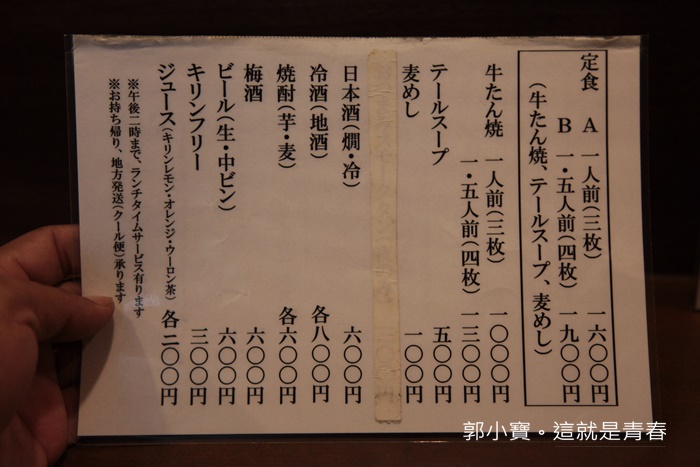 定食 A 一人前(三枚) 一六〇〇円
B 一・五人前(四枚) 一九〇〇円
(牛たん焼、テールスープ、麦めし)
牛たん焼 一人前(三枚) 一〇〇〇円
一・五人前(四枚) 一三〇〇円
テールスープ 五〇〇円
麦めし 一〇〇円
日本酒(燗・冷) 六〇〇円
冷酒(地酒) 各八〇〇円
焼酎(芋・麦) 各六〇〇円
梅酒 六〇〇円
ビール(生・中ビン) 六〇〇円
キリンフリー 三〇〇円
ジュース(キリンレモン・オレンジ・ウーロン茶) 各二〇〇円
※午後二時まで、ランチタイムサービス有ります
※お持ち帰り、地方発送(クール便)承ります
郭小寶。這就是青春